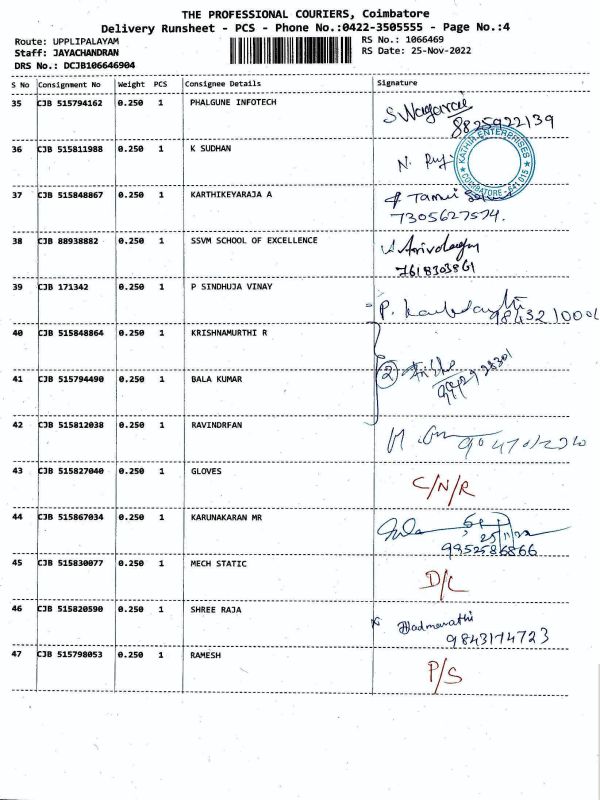 THE PROFESSIONAL COURIERS, Coimbatore
Delivery Runsheet - PCS - Phone No.:0422-3505555 - Page No.:4
Route: UPPLIPALAYAM
Staff: JAYACHANDRAN
DRS No.: DCJB106646904
RS No.: 1066469
RS Date: 25-Nov-2022
S No Consignment No Weight PCS Consignee Details Signature
35 CJB 515794162 0.250 1 PHALGUNE INFOTECH S Nagaraj
8825922139
36 CJB 515811988 0.250 1 K SUDHAN N.
KATHIR ENTERPRISES
COIMBATORE - 641 015
37 CJB 515848867 0.250 1 KARTHIKEYARAJA A
7305627574.
38 CJB 88938882 0.250 1 SSVM SCHOOL OF EXCELLENCE
7618303861
39 CJB 171342 0.250 1 P SINDHUJA VINAY P.
40 CJB 515848864 0.250 1 KRISHNAMURTHI R
41 CJB 515794490 0.250 1 BALA KUMAR 2
42 CJB 515812038 0.250 1 RAVINDRFAN
43 CJB 515827040 0.250 1 GLOVES C/N/R
44 CJB 515867034 0.250 1 KARUNAKARAN MR
25/11/22
45 CJB 515830077 0.250 1 MECH STATIC D/L
46 CJB 515820590 0.250 1 SHREE RAJA Padmavathi
9843174723
47 CJB 515798053 0.250 1 RAMESH P/S